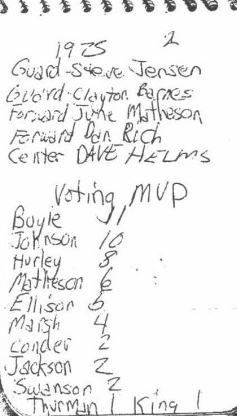 1975 2
Guard-Steve Jensen
Guard-Clayton Barnes
Forward Matheson
Forward Dan Rich
Center DAVE HELMS
Voting MVP
Boyle 11
Johnson 10
Hurley 8
Matheson 6
Ellison 6
Marsh 4
Conder 2
Jackson 2
Swanson 2
Thurman 1 King 1